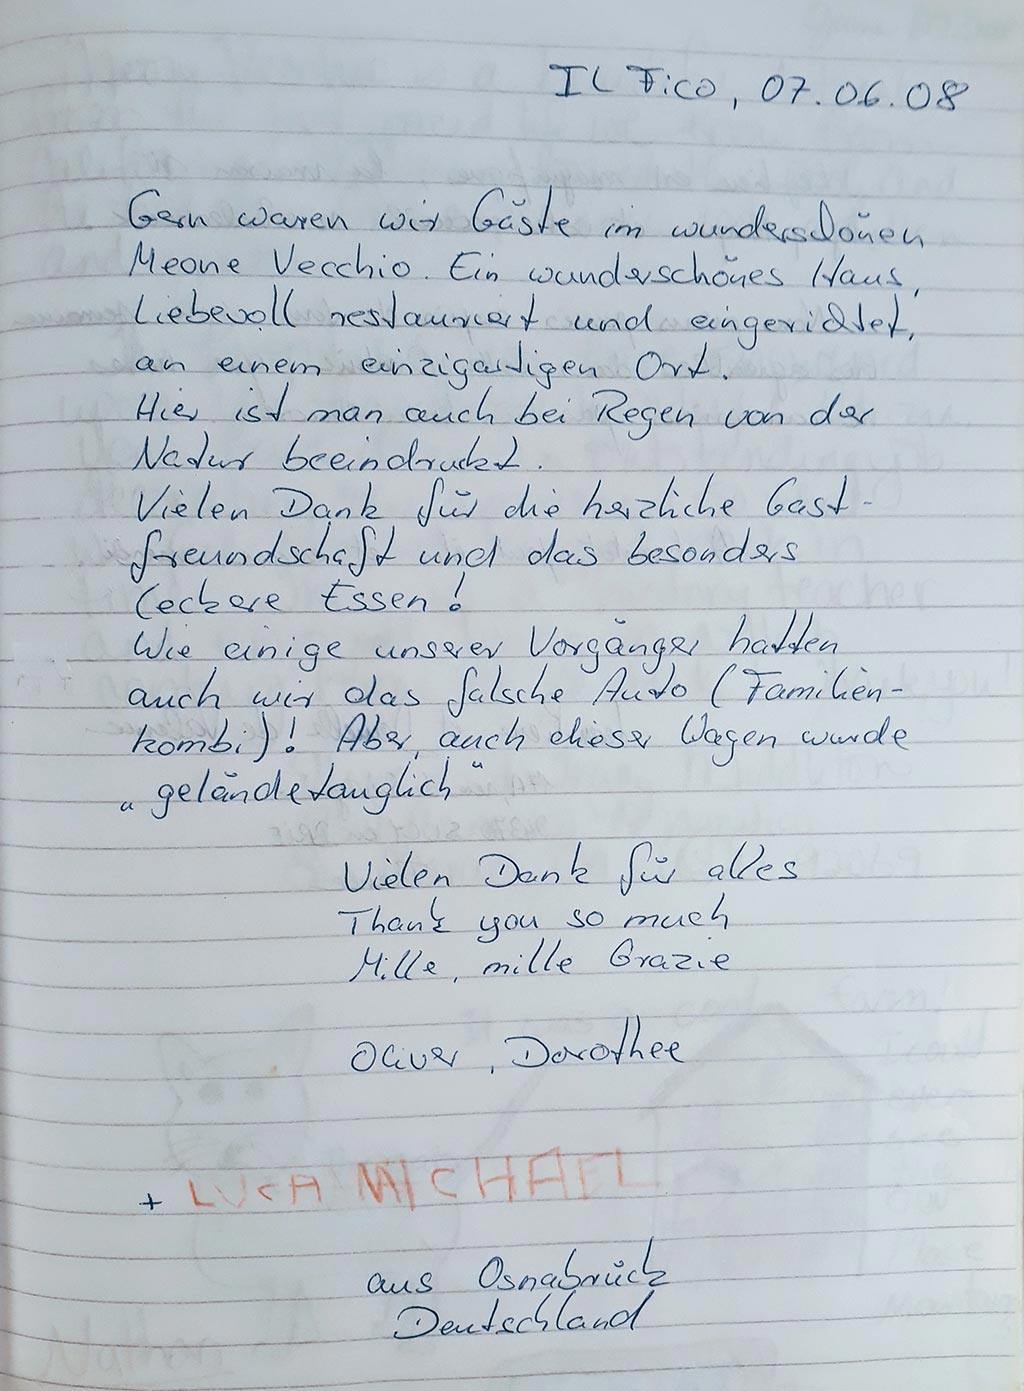 Il Fico, 07.06.08
Gern waren wir Gäste im wunderschönen
Meone Vecchio. Ein wunderschönes Haus,
Liebevoll restauriert und eingerichtet,
an einem einzigartigen Ort.
Hier ist man auch bei Regen von der
Natur beeindruckt.
Vielen Dank für die herzliche Gast-
freundschaft und das besonders
leckere Essen!
Wie einige unserer Vorgänger hatten
auch wir das falsche Auto (Familien-
kombi)! Aber auch dieser Wagen wurde
„geländetauglich“
Vielen Dank für alles
Thank you so much
Mille, mille Grazie
Oliver, Dorothee
+ LUCA MICHAEL
aus Osnabrück
Deutschland